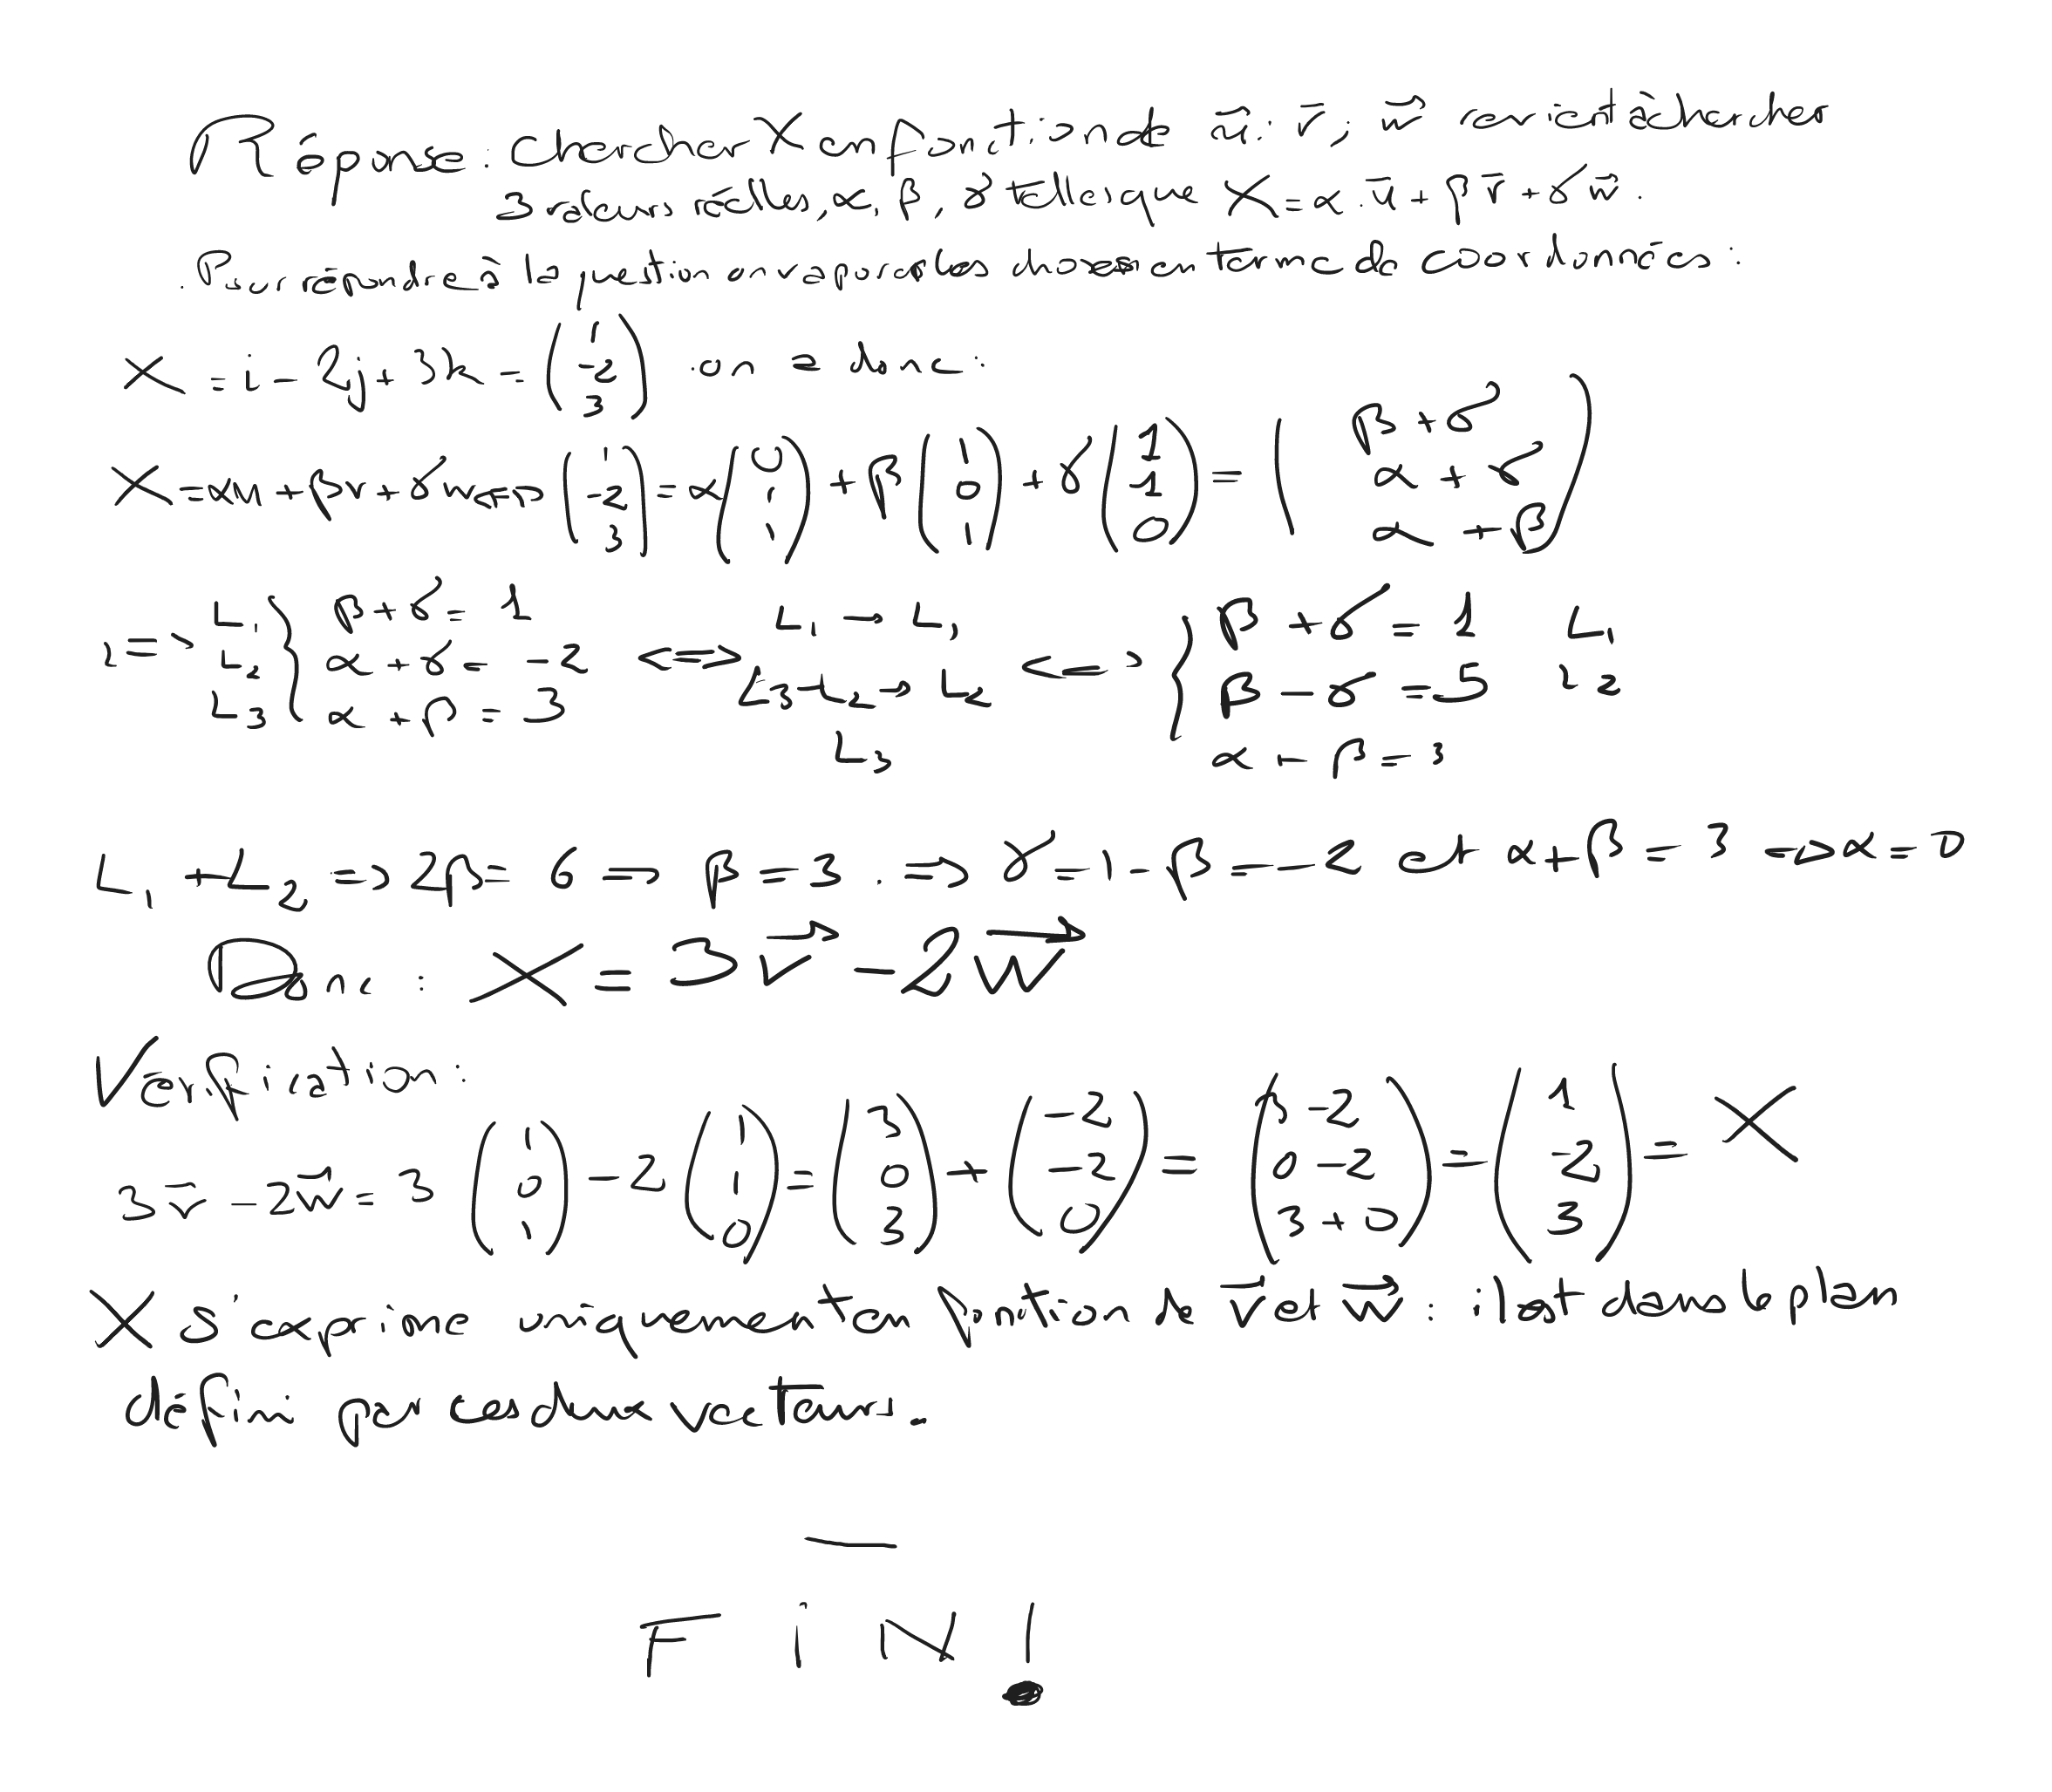 Réponse : Chercher X en fonction de u⃗, v⃗, w⃗ revient à chercher
3 valeurs réelles, α, β, γ telles que X = α.u⃗ + βv⃗ + γw⃗.
. Pour répondre à la question on va poser les choses en terme de coordonnées :
X = i - 2j + 3k = (1 ; -2 ; 3) on a donc :
X = αu + βv + γw <=> (1 ; -2 ; 3) = α(0 ; 1 ; 1) + β(1 ; 0 ; 1) + γ(1 ; 1 ; 0) = (β + γ ; α + γ ; α + β)
<=> L1 L2 L3 { β + γ = 1 ; α + γ = -2 ; α + β = 3 <=> L1 → L1 ; L3 - L2 → L2 ; L3 <=> { β + γ = 1 L1 ; β - γ = 5 L2 ; α + β = 3
L1 + L2 => 2β = 6 => β = 3. => γ = 1 - β = -2 et α + β = 3 => α = 0
Donc : X = 3v⃗ - 2w⃗
Vérification :
3v⃗ - 2w⃗ = 3(1 ; 0 ; 1) - 2(1 ; 1 ; 0) = (3 ; 0 ; 3) + (-2 ; -2 ; 0) = (3 - 2 ; 0 - 2 ; 3 + 0) = (1 ; -2 ; 3) = X
X s'exprime uniquement en fonction de v⃗ et w⃗ : il est dans le plan
défini par ces deux vecteurs.
FiN!